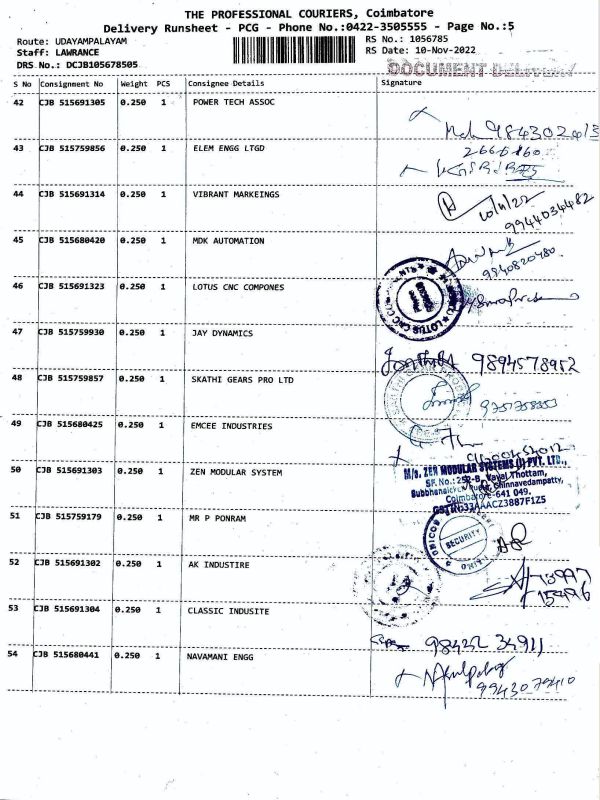 THE PROFESSIONAL COURIERS, Coimbatore
Delivery Runsheet - PCG - Phone No.:0422-3505555 - Page No.:5
Route: UDAYAMPALAYAM
RS No.: 1056785
Staff: LAWRANCE
RS Date: 10-Nov-2022
DRS No.: DCJB105678505
DOCUMENT DELIVERY
S No Consignment No Weight PCS Consignee Details Signature
42 CJB 515691305 0.250 1 POWER TECH ASSOC
43 CJB 515759856 0.250 1 ELEM ENGG LTGD
44 CJB 515691314 0.250 1 VIBRANT MARKEINGS
10/11/22
9944034482
45 CJB 515680420 0.250 1 MDK AUTOMATION
9840820480
46 CJB 515691323 0.250 1 LOTUS CNC COMPONES
LOTUS CNC
47 CJB 515759930 0.250 1 JAY DYNAMICS
9894578952
48 CJB 515759857 0.250 1 SKATHI GEARS PRO LTD
49 CJB 515680425 0.250 1 EMCEE INDUSTRIES
50 CJB 515691303 0.250 1 ZEN MODULAR SYSTEM
M/s. ZEN MODULAR SYSTEMS (I) PVT. LTD.,
SF. No.: 252-B, Vayal Thottam,
Chinnavedampatty,
Coimbatore-641 049.
51 CJB 515759179 0.250 1 MR P PONRAM
SECURITY
52 CJB 515691302 0.250 1 AK INDUSTIRE
53 CJB 515691304 0.250 1 CLASSIC INDUSITE
98422 34911
54 CJB 515680441 0.250 1 NAVAMANI ENGG
9943079410